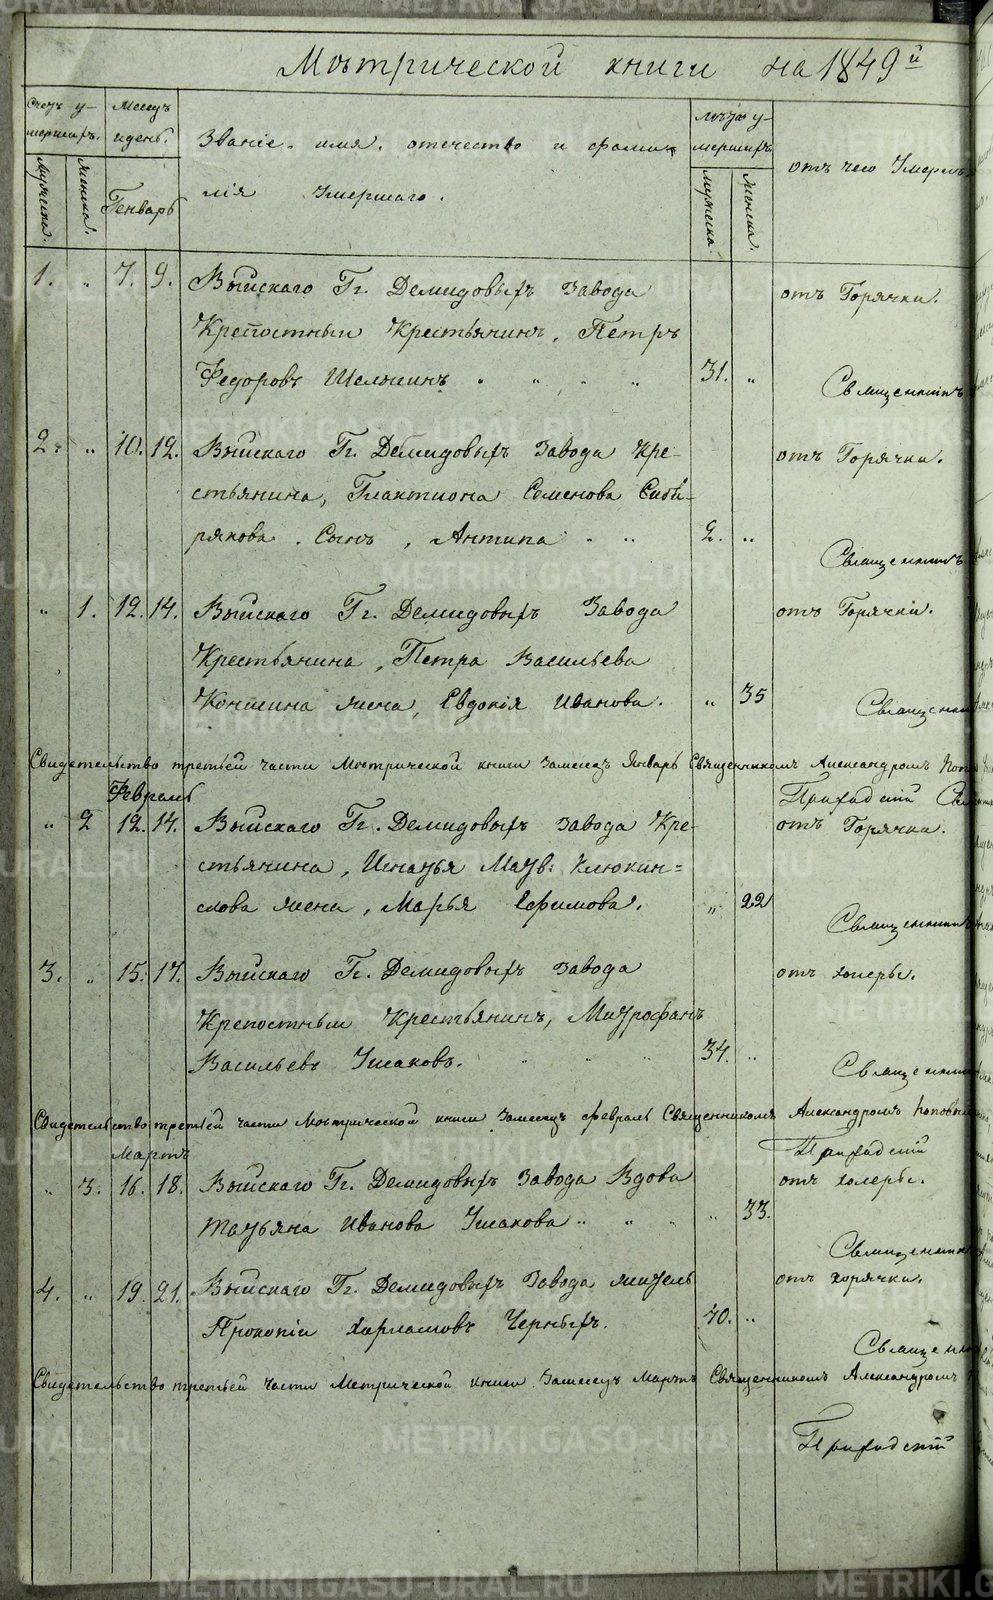 Метрической книги на 1849й
Счетъ у-
мершихъ.
Мужска.
Женска.
Месяцъ
и день.
Генварь
Званіе. имя. отечество и фами-
лія Умершаго.
лѣта у-
мершихъ
Мужеска.
Женска.
отъ чего Умеръ
1. „ 7. 9. Выйскаго Гг. Демидовыхъ Завода
Крепостный Крестьянинъ, Петръ
Федоровъ Шелжинъ „ „ „ „ 31. „
отъ Горячки.
Священникъ
2. „ 10. 12. Выйскаго Гг. Демидовыхъ Завода Кре-
стьянина, Галактиона Семенова Сиби-
рякова. Сынъ, Антипа „ „ 2. „
отъ Горячки.
Священникъ
„ 1. 12. 14. Выйскаго Гг. Демидовыхъ Завода
Крестьянина, Петра Васильева
Коншина жена, Евдокія Иванова. „ 35
отъ Горячки.
Свидетельство третьей части Метрической книги за месяцъ Январь Священникомъ Александромъ
Февраль
Приходский
„ 2 12. 14. Выйскаго Гг. Демидовыхъ Завода Кре-
стьянина, Игнатья Матв: Клюкин=
скова жена, Марья Ефимова. „ 22
отъ Горячки.
Священникъ
3. „ 15. 17. Выйскаго Гг. Демидовыхъ Завода
Крепостный Крестьянинъ, Митрофанъ
Васильевъ Ушаковъ. „ „ „ 34. „
отъ холеры.
Свидетельство третьей части Метрической книги за месяцъ февраль Священникомъ Александромъ Поповымъ
Мартъ
Приходский
„ 3. 16. 18. Выйскаго Гг. Демидовыхъ Завода Вдова
Татьяна Иванова Ушакова „ „ „ „ 33.
отъ холеры.
4. „ 19. 21. Выйскаго Гг. Демидовыхъ Завода житель
Прокопій Харламовъ Черныхъ. 40. „
отъ горячки.
Свидетельство третьей части Метрической книги за месяцъ Мартъ Священникомъ Александромъ
Приходский
METRIKI.GASO-URAL.RU